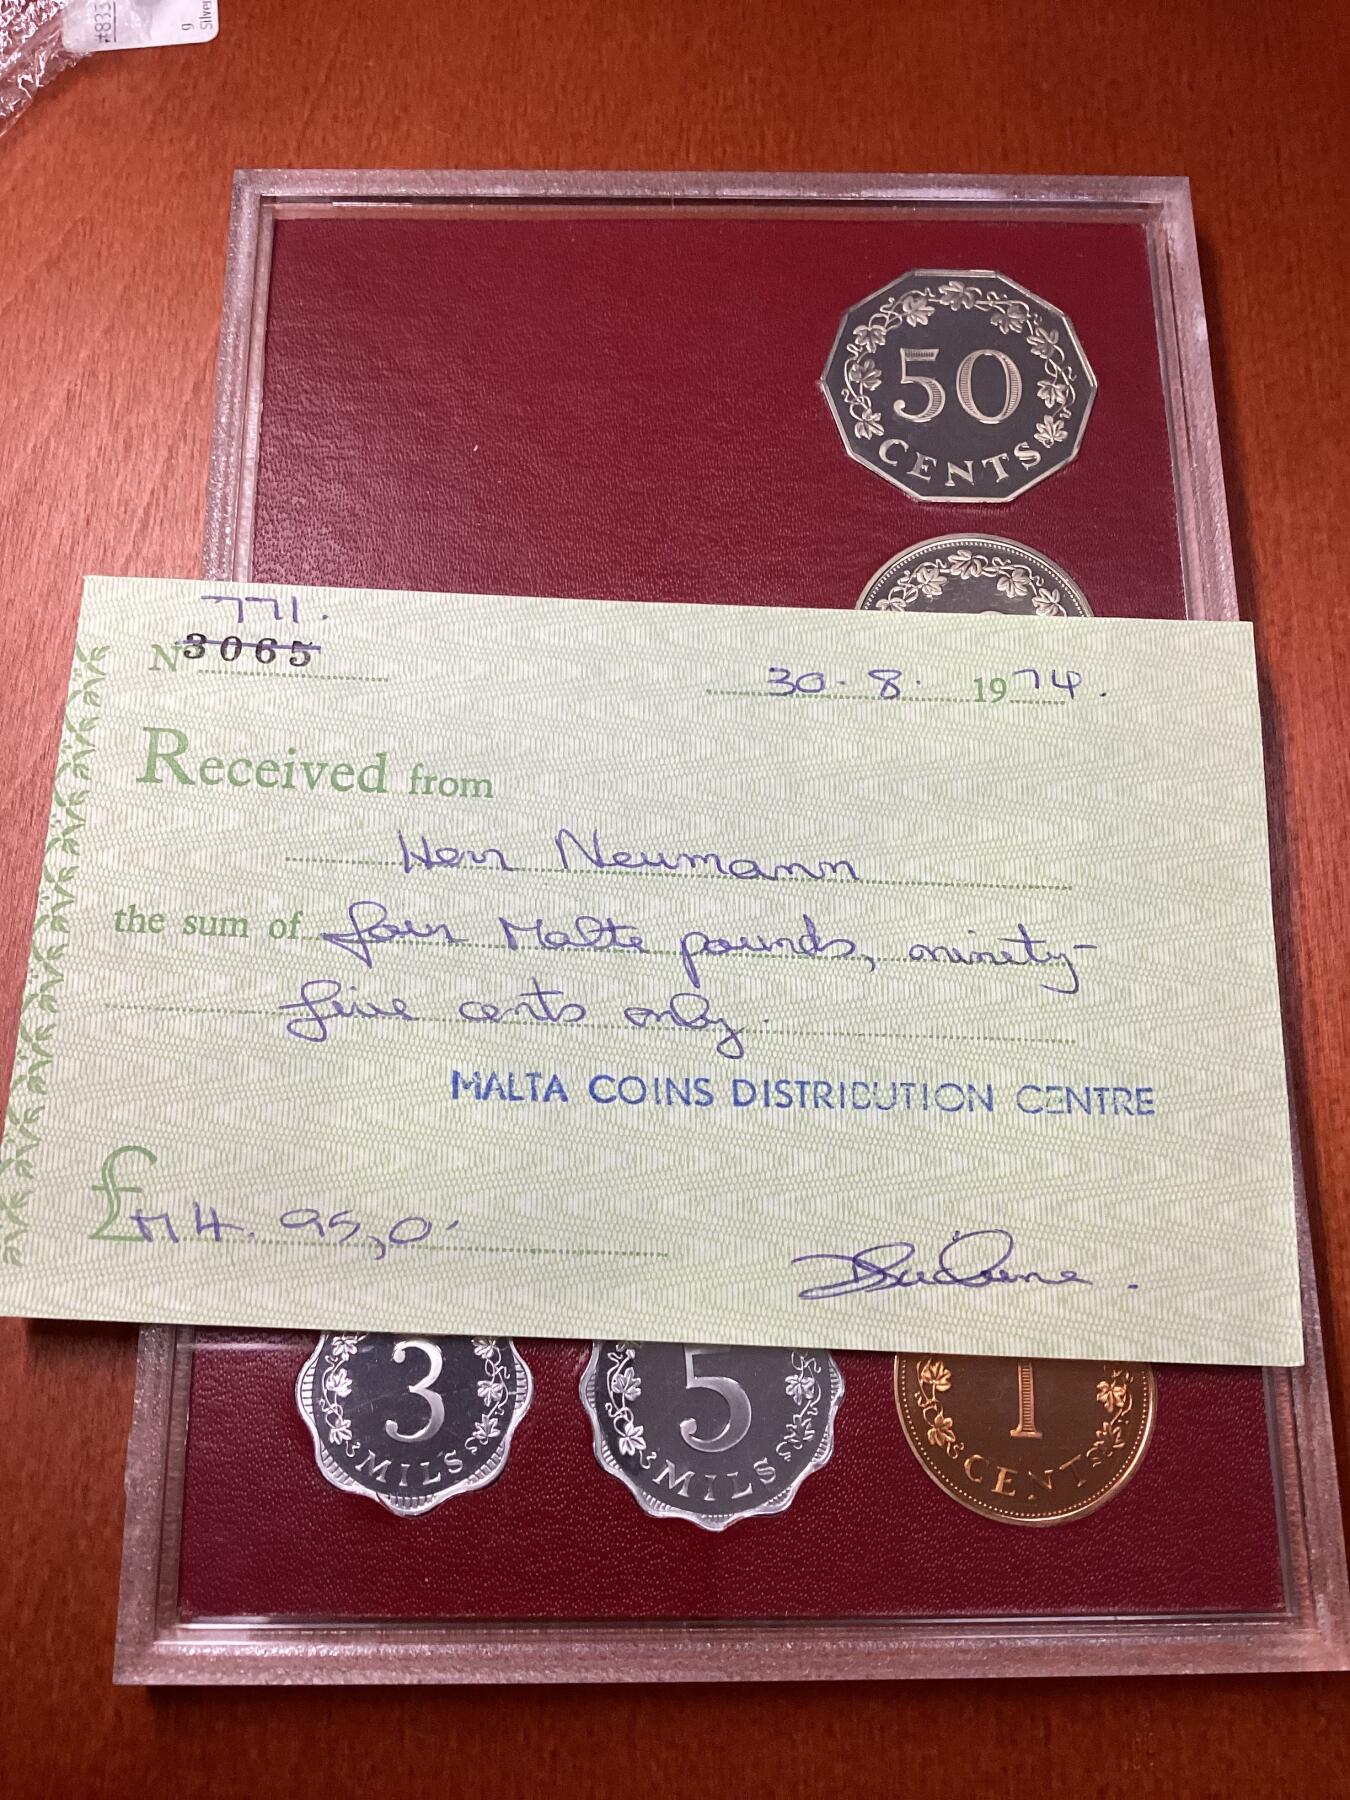 #833
g
Silver
50
CENTS
771.
Nº 3065
30.8. 1974.
Received from
Herr Neumann
the sum of four Malta pounds, ninety-
five cents only.
MALTA COINS DISTRIBUTION CENTRE
£M 4.95,0.
3
MILS
5
MILS
1
CENT